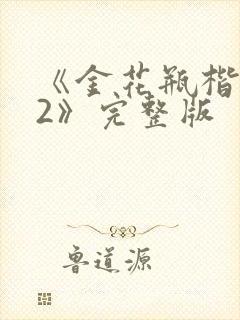 《金花瓶楷
2》完整版
鲁道源